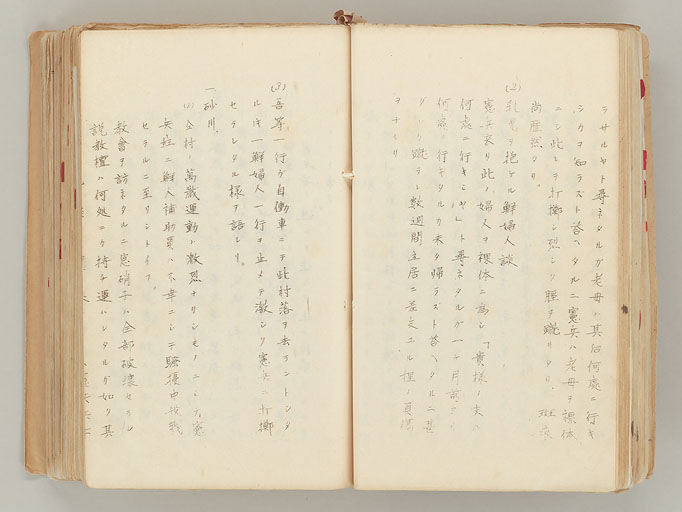 ラサルヤト尋ネタルガ老母ハ其后何處ニ行キ
シカヲ知ラズト答ヘタルニ憲兵ハ老母ヲ裸体
ニシ此レヲ打擲シ烈シク腰ヲ蹴リシタリ 斑痕
尚歴然タリ。
(2)乳児ヲ抱ケル鮮婦人談
憲兵来リ此ノ婦人ヲ裸体ニ為シ「貴様ノ夫ハ
何處ニ行キシヤ」ト尋ネタルガ一ケ月前ヨリ
何處ニ行キタルカ未タ帰ラズト答ヘタルニ甚
ク蹴ラレ数週間立居ニ差支ユル程ノ負傷
ヲナセリ
(3)吾等一行ガ自働車ニテ此村落ヲ去ラントシタ
ル時一鮮婦人一行ヲ止メテ激シク憲兵ニ打擲
セラレタル様ヲ語レリ。
一、砂川。
(1)全村ノ萬歳運動ト激烈ナリシモノニシテ憲
兵駐ニ鮮人補助員ハ不幸ニシテ騒擾中投戝
セラルニ至リシトイフ。
教會ヲ訪ネタルニ窓硝子ハ全部破壊セラレ
説教壇ハ何処ニカ持チ運ハレタルガ如ク其